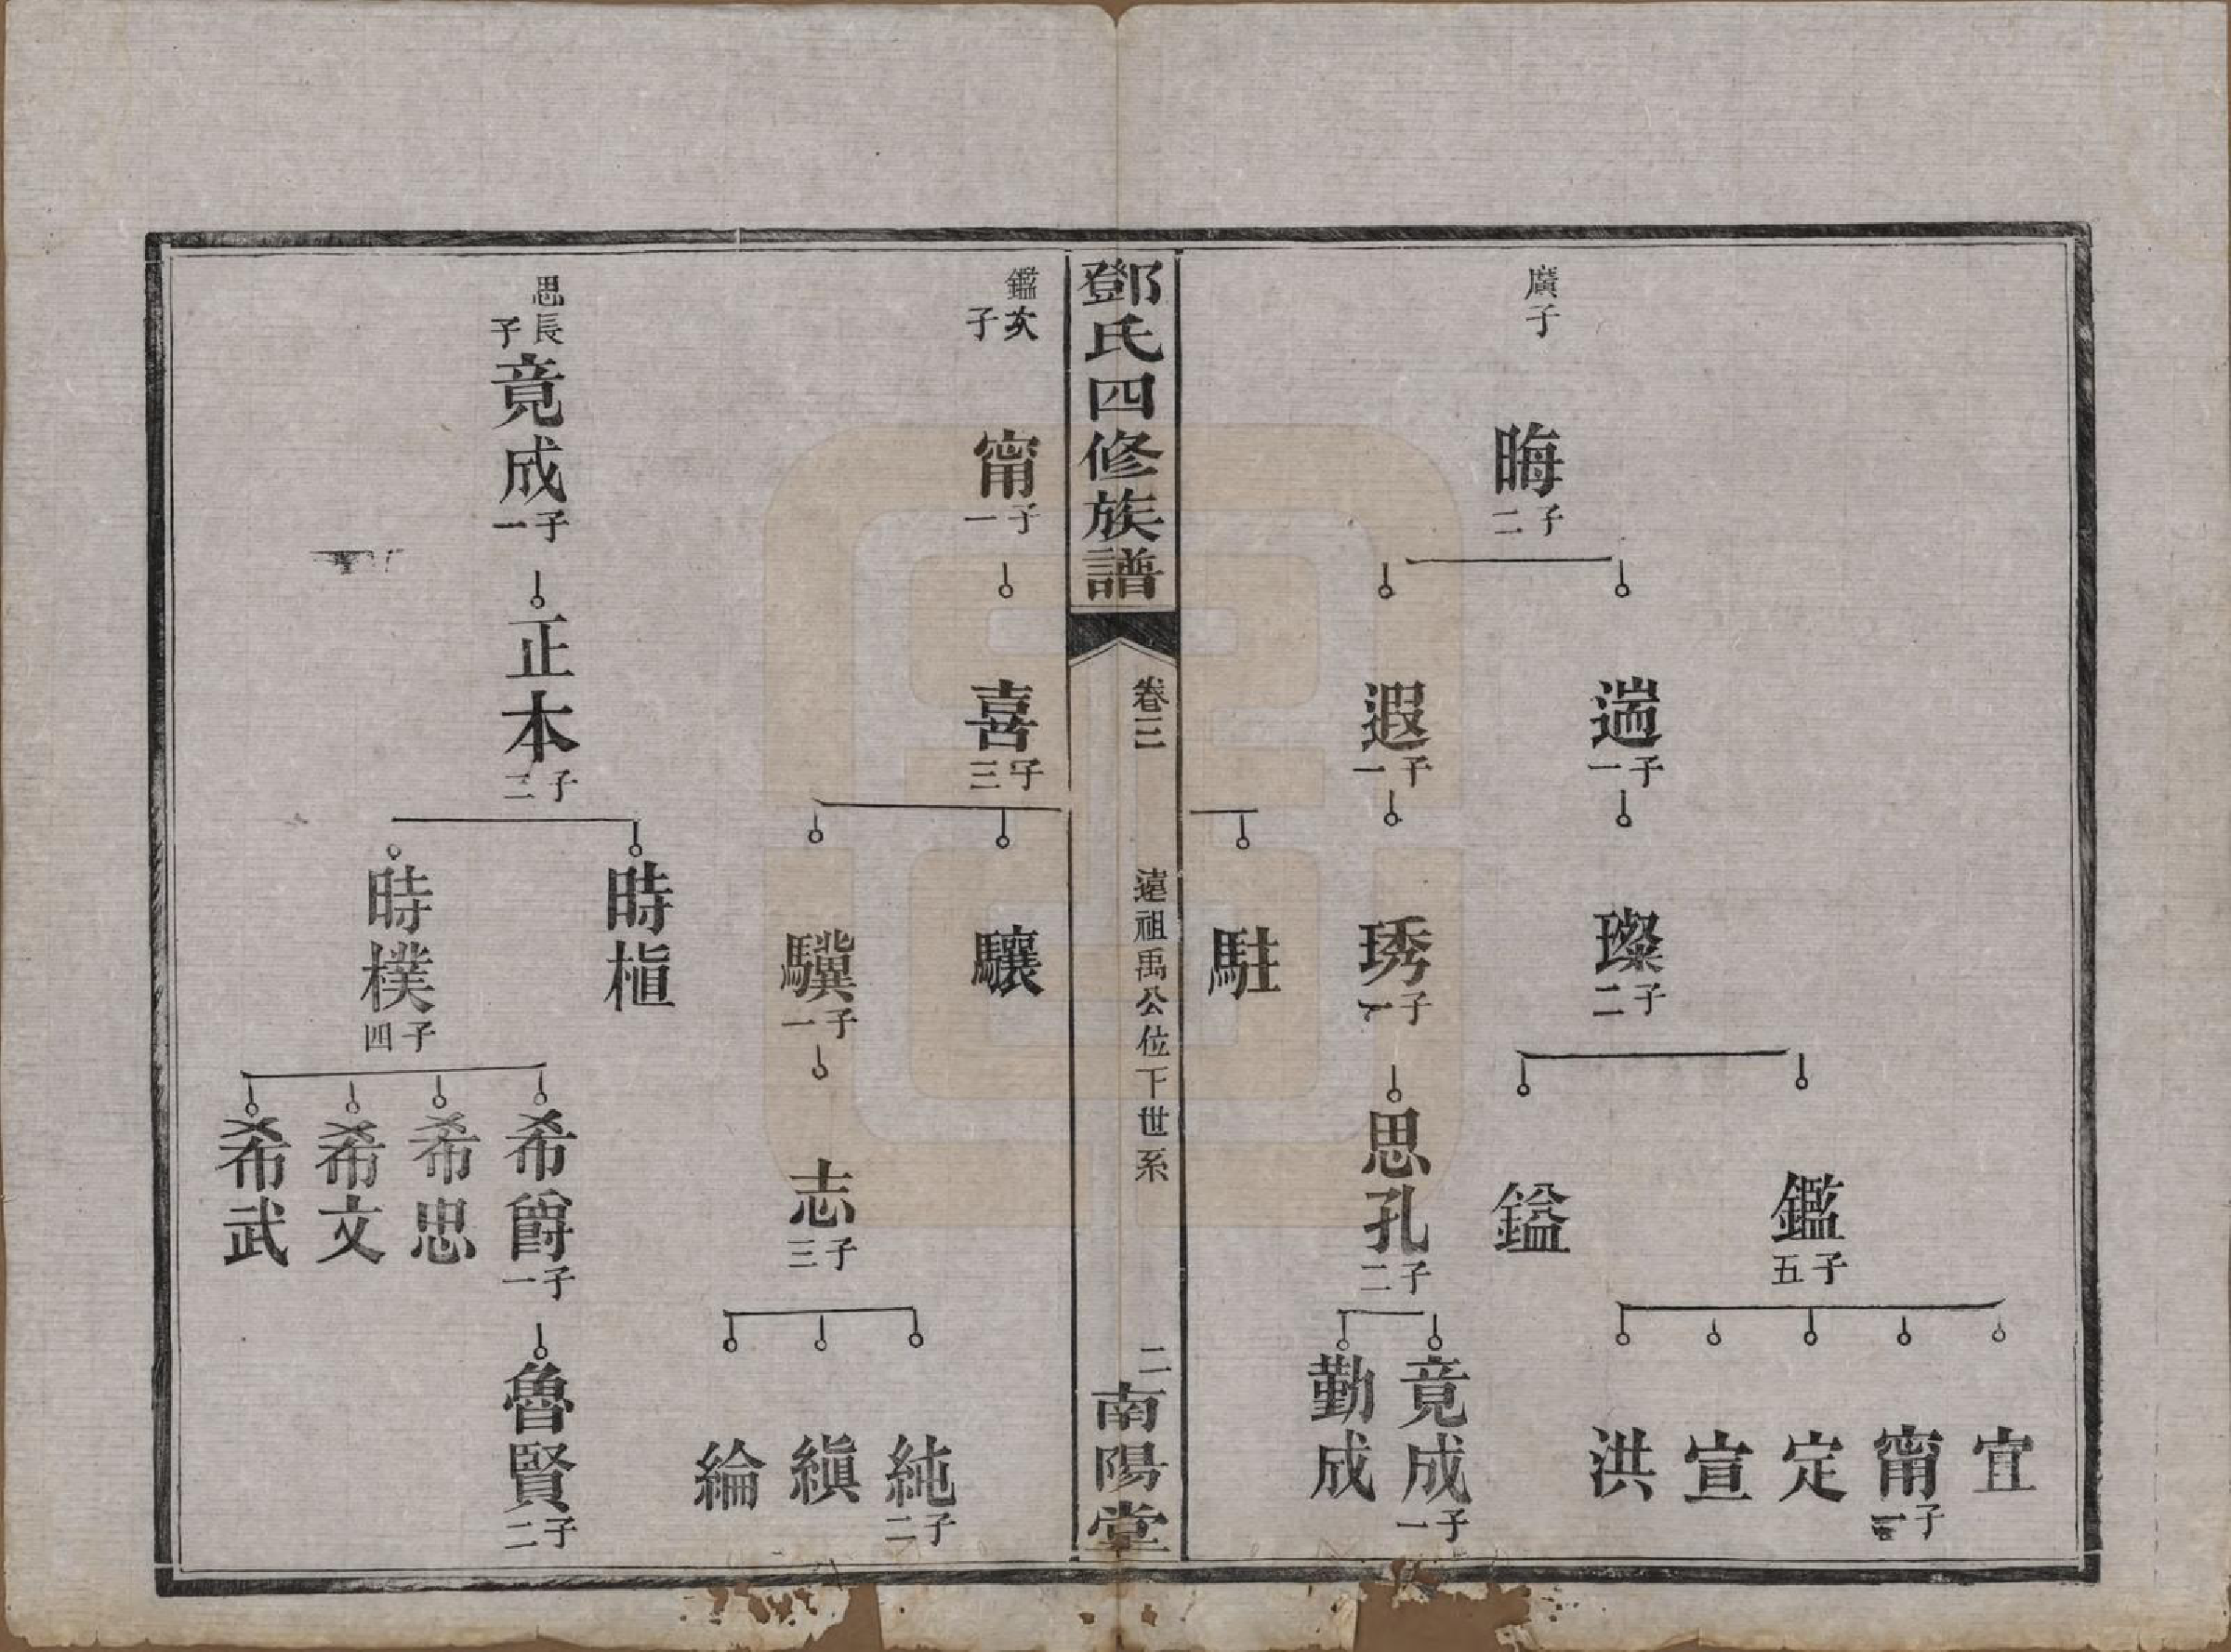 廣子
晦
子二
遄
子一
遐
子一
璨
子二
琇
子一
駐
鑑
子五
鎰
思孔
子二
宜
甯
子一
定
宣
洪
竟成
子一
勤成
鄧氏四修族譜
卷三
遠祖禹公位下世系
二
南陽堂
鑑次子
甯
子一
喜
子三
驤
驥
子一
志
子三
純
子二
縝
綸
思長子
竟成
子一
正本
子二
時楦
時樸
子四
希爵
子一
希思
希文
希武
魯賢
子二